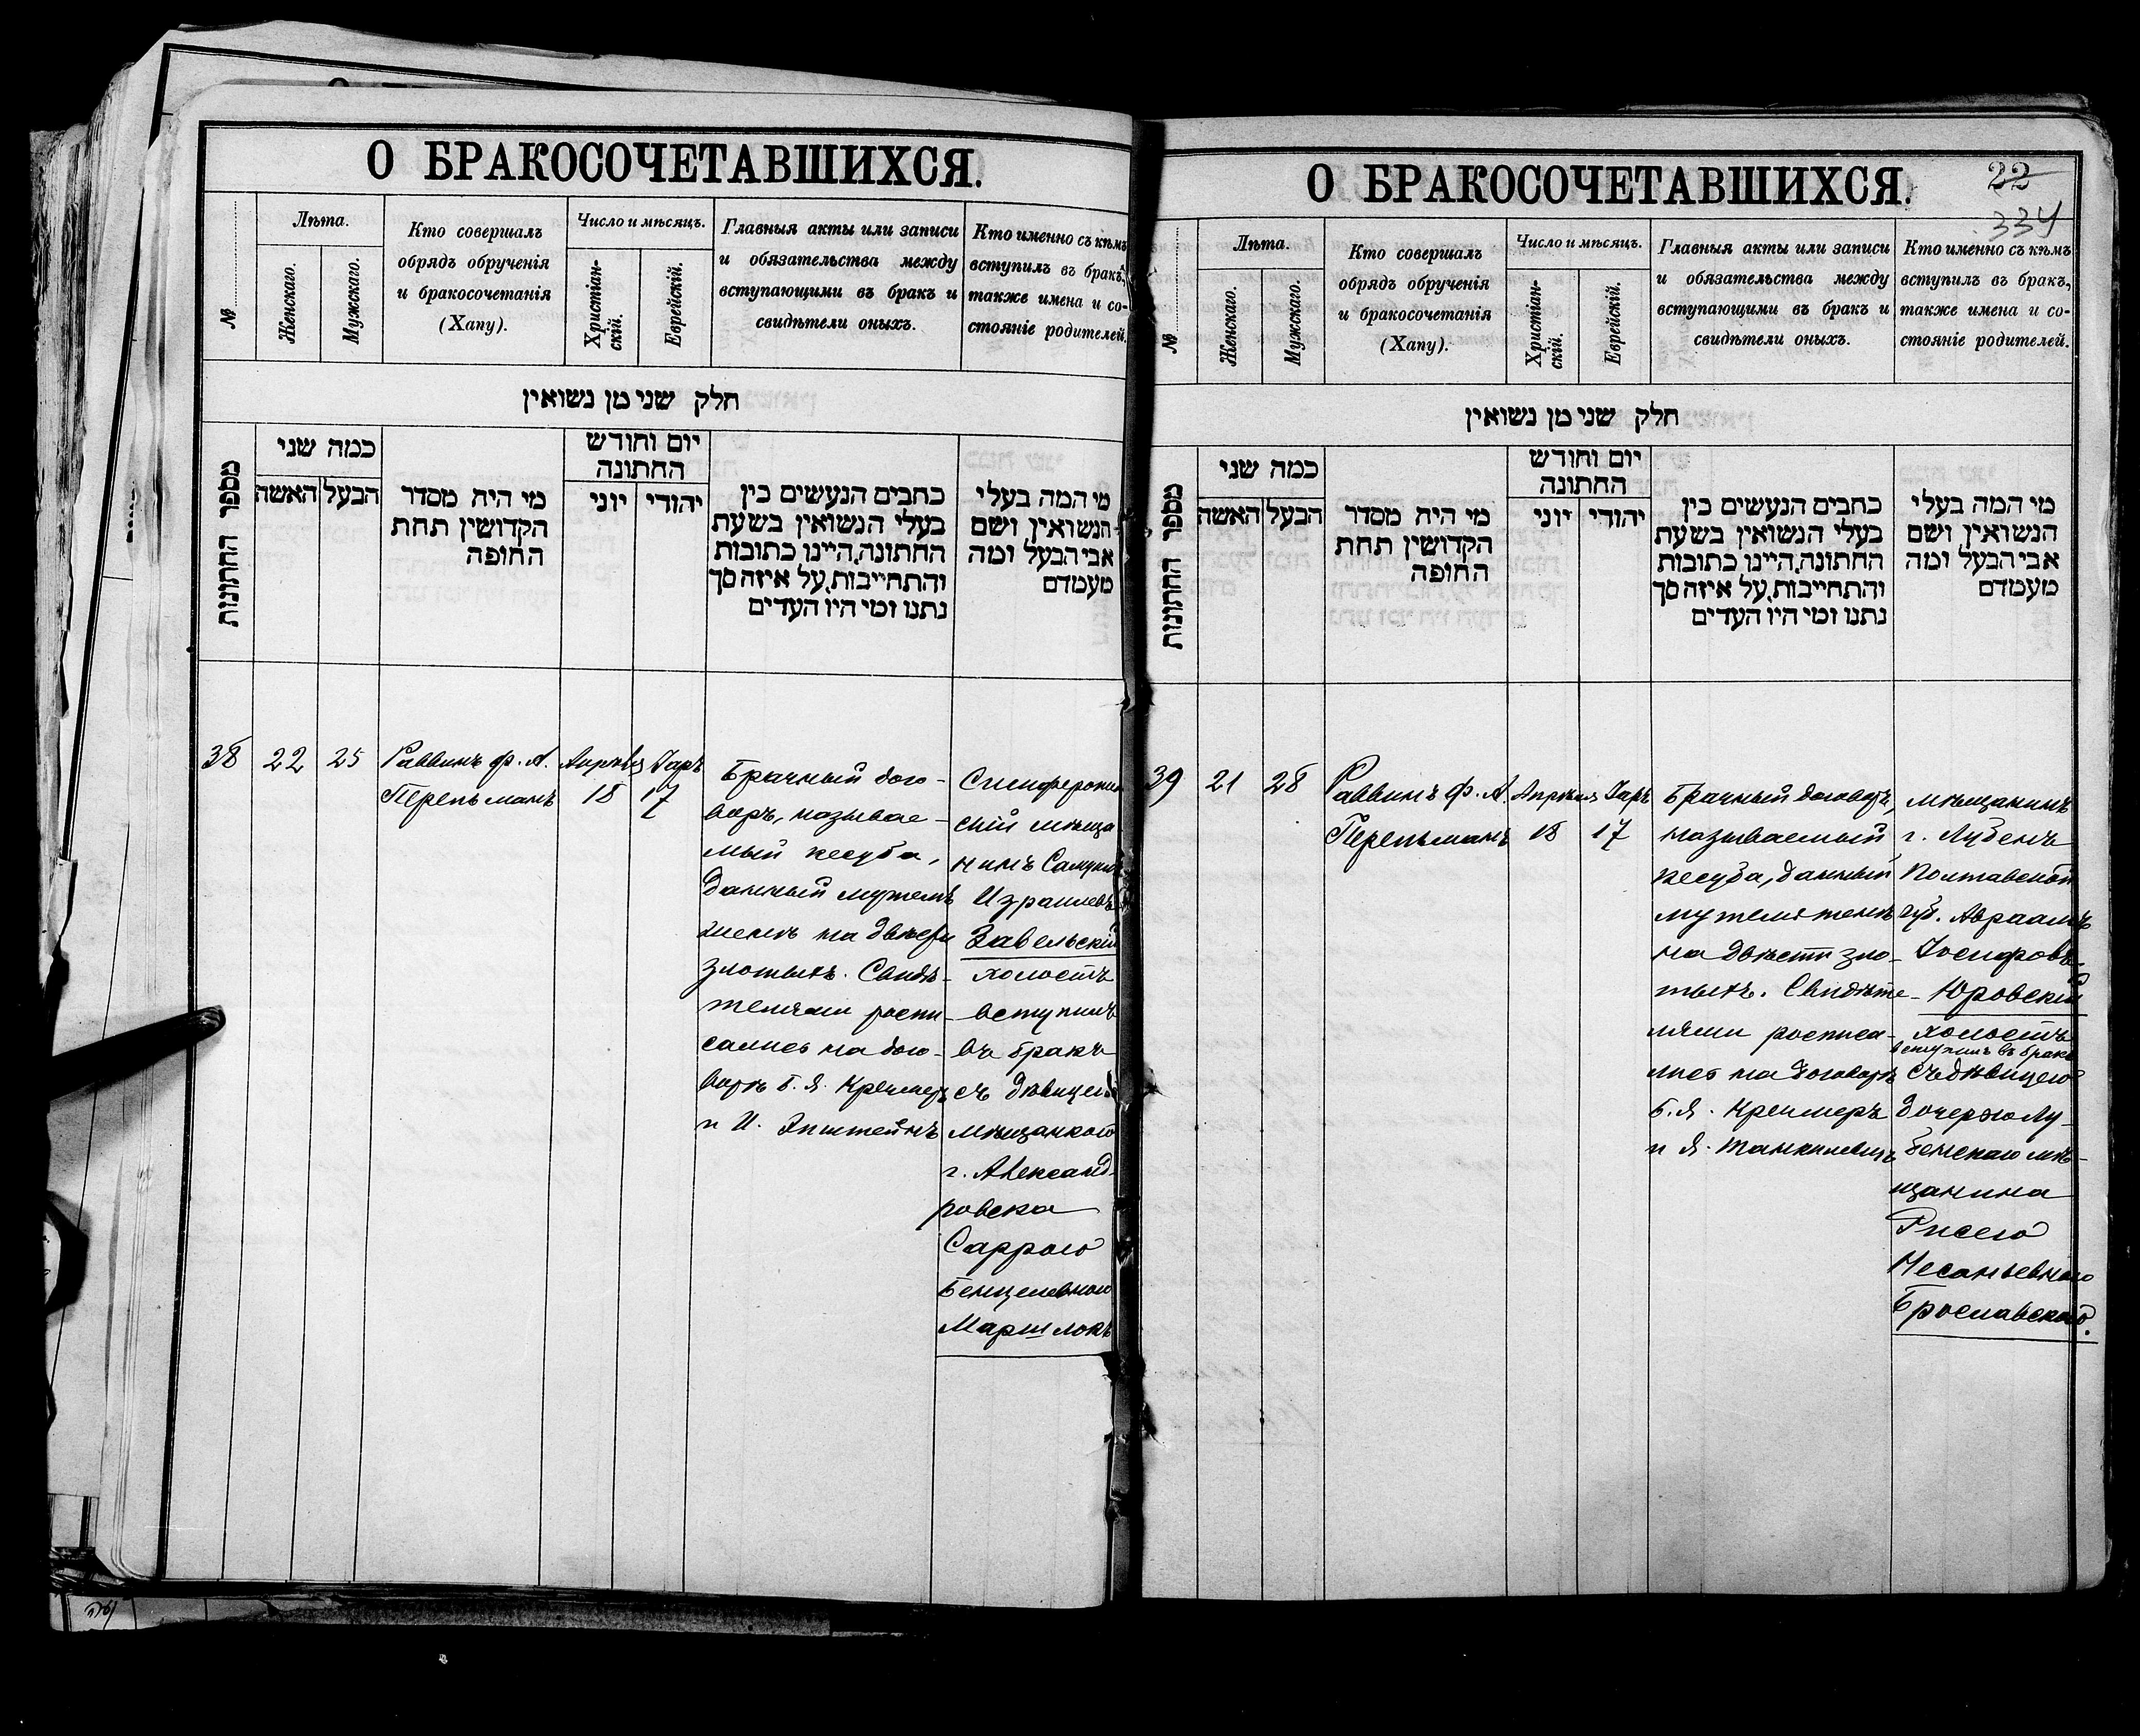 О БРАКОСОЧЕТАВШИХСЯ.
№
Лѣта.
Женскаго.
Мужскаго.
Кто совершалъ
обрядъ обрученія
и бракосочетанія
(Хапу).
Число и мѣсяцъ.
Христіан-
скій.
Еврейскій.
Главныя акты или записи
и обязательства между
вступающими въ бракъ и
свидѣтели оныхъ.
Кто именно съ кѣмъ
вступилъ въ бракъ,
также имена и со-
стояніе родителей.
חלק שני מן נשואין
מספר החתונות
כמה שני
האשה
הבעל
מי היה מסדר
הקדושין תחת
החופה
יום וחודש
החתונה
יוני
יהודי
כתבים הנעשים בין
בעלי הנשואין בשעת
החתונה, היינו כתובות
והתחייבות, על איזה סך
נתנו ומי היו העדים
מי המה בעלי
הנשואין ושם
אבי הבעל ומה
מעמדם
38
22
25
Раввинъ Ф. А.
Перельманъ
Апрѣля
18
Іаръ
17
Брачный дого-
воръ, называе-
мый кесуба,
данный мужемъ
женѣ на двѣсти
злотыхъ. Свидѣ-
телями распи-
сались на дого-
ворѣ Б. Я. Крейшеръ
и И. Эпштейнъ
Симферополь
скій мѣща
нинъ Самуилъ
Израилевъ
Завельскій
холостъ
вступилъ
въ бракъ
съ дѣвицею
мѣщанкою
г. Александ-
ровска
Саррою
Бенцелевною
Маршлокъ
О БРАКОСОЧЕТАВШИХСЯ.
22
334
№
Лѣта.
Женскаго.
Мужскаго.
Кто совершалъ
обрядъ обрученія
и бракосочетанія
(Хапу).
Число и мѣсяцъ.
Христіан-
скій.
Еврейскій.
Главныя акты или записи
и обязательства между
вступающими въ бракъ и
свидѣтели оныхъ.
Кто именно съ кѣмъ
вступилъ въ бракъ,
также имена и со-
стояніе родителей.
חלק שני מן נשואין
מספר החתונות
כמה שני
האשה
הבעל
מי היה מסדר
הקדושין תחת
החופה
יום וחודש
החתונה
יוני
יהודי
כתבים הנעשים בין
בעלי הנשואין בשעת
החתונה, היינו כתובות
והתחייבות, על איזה סך
נתנו ומי היו העדים
מי המה בעלי
הנשואין ושם
אבי הבעל ומה
מעמדם
39
21
28
Раввинъ Ф. А.
Перельманъ
Апрѣля
18
Іаръ
17
Брачный договоръ,
называемый
кесуба, данный
мужемъ женѣ
на двѣсти зло-
тыхъ. Свидѣте-
лями росписа-
лись на договорѣ
Б. Я. Крейшеръ
и Я. Танкилевичъ
мѣщанинъ
г. Лубенъ
Полтавской
губ. Авраамъ
Іосифовъ
Юровскій
холостъ
вступилъ въ бракъ
съ дѣвицею
дочерью Лу-
бенскаго мѣ-
щанина
Рисею
Несаньевною
Брославскою.